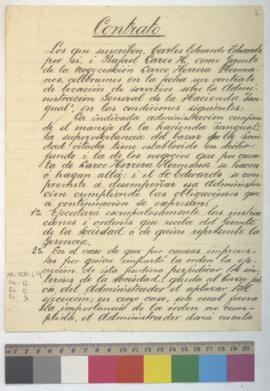 2
Contrato
Los que suscriben, Carlos Eduardo Edwards
por sí, i Rafael Larco H., como Gerente
de la Negociación Larco Herrera Herma-
nos, celebramos en la fecha un contrato
de locación de servicios sobre la Admi-
nistración General de la Hacienda San-
qual, en las condiciones siguientes:
La indicada administración compren-
de el manejo de la hacienda
la supervigilancia del bazar que la socie-
dad citada tiene establecido en dicho
fundo i la de los negocios que por cuen-
ta de Larco Herrera Hermanos se hacen
ó hagan allá; i el Sr. Edwards se com-
promete á desempeñar esa Adminis-
tración cumpliendo las obligaciones que
á continuación se expresan:
1a Ejecutará escrupulosamente las instruc-
ciones i órdenes que reciba del Gerente
de la Sociedad ó de quien represente la
Gerencia.
2a En el caso de que por causas imprevis-
tas por quien impartió la orden la eje-
cución de ésta pudiera perjudicar los in-
tereses de la Sociedad, queda al buen jui-
cio del Administrador el aplazar su
ejecución; en cuyo caso, sea cual fuera
la importancia de la orden no cum-
plida, el Administrador dará cuenta